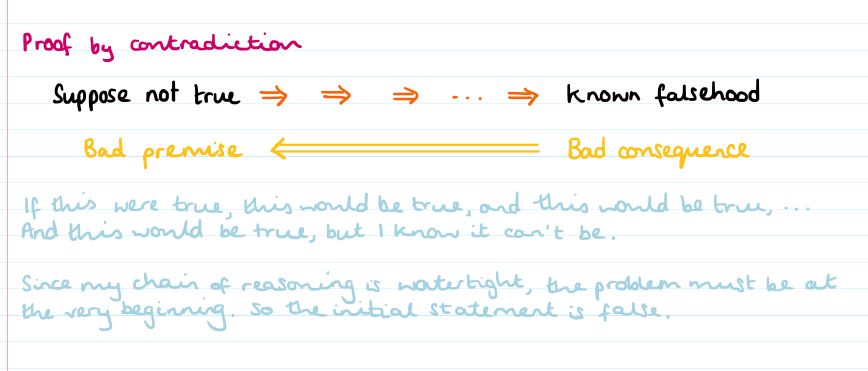 Proof by contradiction
Suppose not true ⇒ ⇒ ⇒ ... ⇒ known falsehood
Bad premise ⟸ Bad consequence
If this were true, this would be true, and this would be true, ...
And this would be true, but I know it can't be.
Since my chain of reasoning is watertight, the problem must be at
the very beginning. So the initial statement is false.